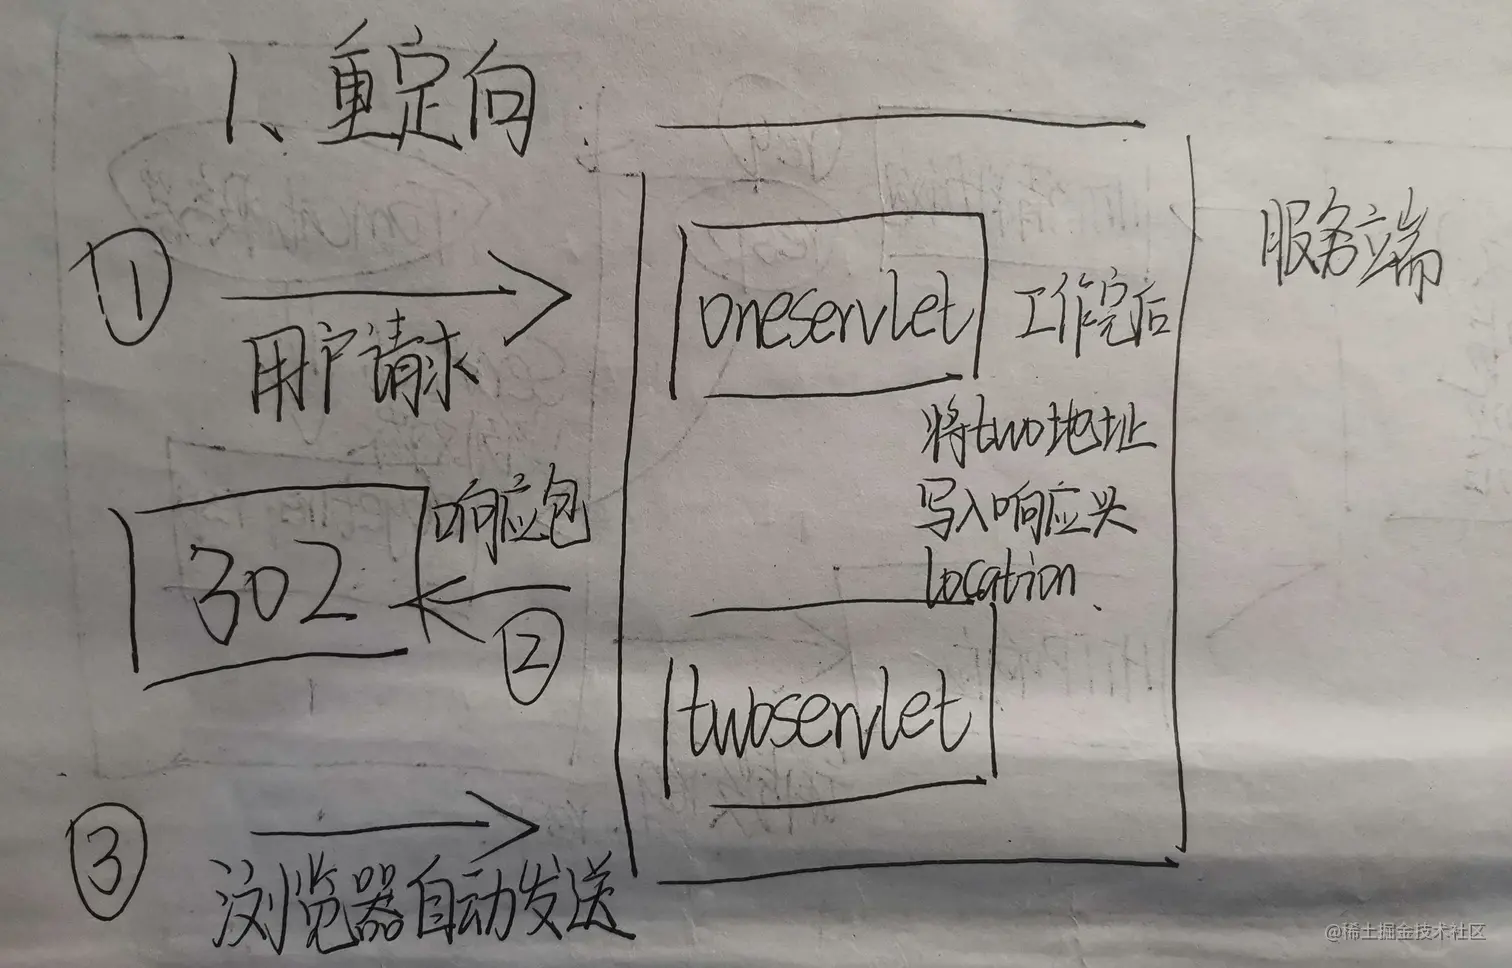 1、重定向
服务端
①
用户请求
oneservlet 工作完后
将two地址
写入响应头
location
302
响应包
②
twoservlet
③
浏览器自动发送
@稀土掘金技术社区